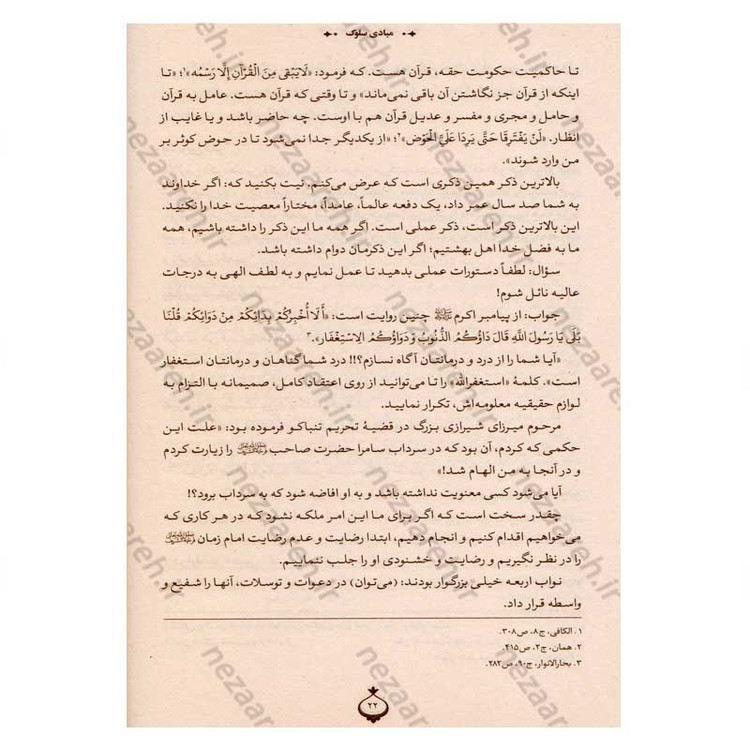 مبادی سلوک
تا حاکمیت حکومت حقه، قرآن هست. که فرمود: «لَایَبْقی مِنَ الْقُرْآنِ إِلَّا رَسْمُه»۱؛ «تا
اینکه از قرآن جز نگاشتن آن باقی نمی‌ماند» و تا وقتی که قرآن هست. عامل به قرآن
و حامل و مجری و مفسر و عدیل قرآن هم با اوست. چه حاضر باشد و یا غایب از
انظار. «لَنْ یَفْتَرِقَا حَتَّی یَرِدَا عَلَیَّ الْحَوْضَ»۲؛ «از یکدیگر جدا نمی‌شود تا در حوض کوثر بر
من وارد شوند».
بالاترین ذکر همین ذکری است که عرض می‌کنم. نیت بکنید که: اگر خداوند
به شما صد سال عمر داد، یک دفعه عالماً، عامداً، مختاراً معصیت خدا را نکنید.
این بالاترین ذکر است، ذکر عملی است. اگر همه ما این ذکر را داشته باشیم، همه
ما به فضل خدا اهل بهشتیم؛ اگر این ذکرمان دوام داشته باشد.
سؤال: لطفاً دستورات عملی بدهید تا عمل نمایم و به لطف الهی به درجات
عالیه نائل شوم!
جواب: از پیامبر اکرم ﷺ چنین روایت است: «أَلَا أُخْبِرُکُمْ بِدَائِکُمْ مِنْ دَوَائِکُمْ قُلْنَا
بَلَی یَا رَسُولَ اللَّهِ قَالَ دَاؤُکُمُ الذُّنُوبُ وَ دَوَاؤُکُمُ الِاسْتِغْفَار».۳
«آیا شما را از درد و درمانتان آگاه نسازم؟!! درد شما گناهان و درمانتان استغفار
است». کلمهٔ «استغفرالله» را تا می‌توانید از روی اعتقاد کامل، صمیمانه با التزام به
لوازم حقیقیه معلومه‌اش، تکرار نمایید.
مرحوم میرزای شیرازی بزرگ در قضیهٔ تحریم تنباکو فرموده بود: «علت این
حکمی که کردم، آن بود که در سرداب سامرا حضرت صاحب را زیارت کردم
و در آنجا به من الهام شد!»
آیا می‌شود کسی معنویت نداشته باشد و به او افاضه شود که به سرداب برود؟!
چقدر سخت است که اگر برای ما این امر ملکه نشود که در هر کاری که
می‌خواهیم اقدام کنیم و انجام دهیم، ابتدا رضایت و عدم رضایت امام زمان
را در نظر نگیریم و رضایت و خشنودی او را جلب ننماییم.
نواب اربعه خیلی بزرگوار بودند: (می‌توان) در دعوات و توسلات، آنها را شفیع و
واسطه قرار داد.
۱. الکافی، ج۸، ص۳۰۸.
۲. همان، ج۲، ص۴۱۵.
۳. بحارالانوار، ج۹۰، ص۲۸۲.
۲۲
nezaareh.ir